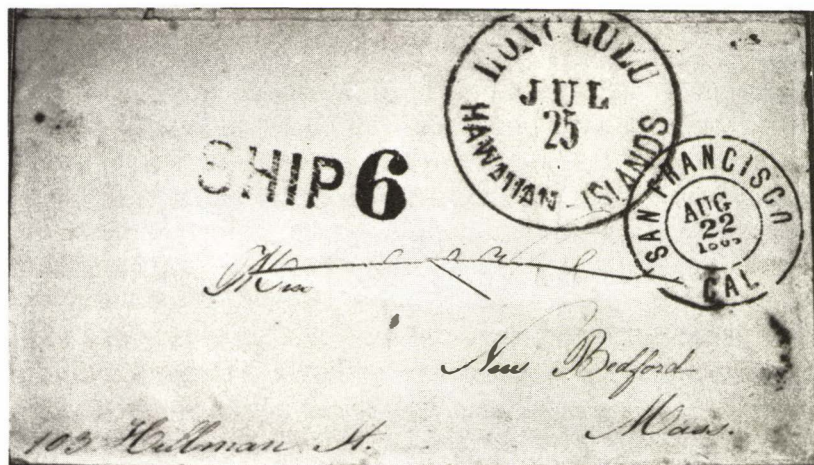 HONOLULU
JUL
25
HAWAIIAN ISLANDS
SHIP 6
SAN FRANCISCO
AUG
22
CAL
New Bedford
Mass.
103 Hillman St.